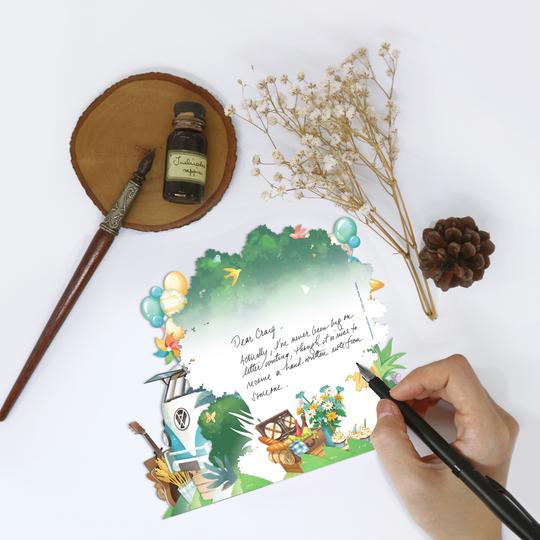 Dear Craig,
Actually, I've never been big on
letter writing, though it is nice to
receive a hand written note from
someone.